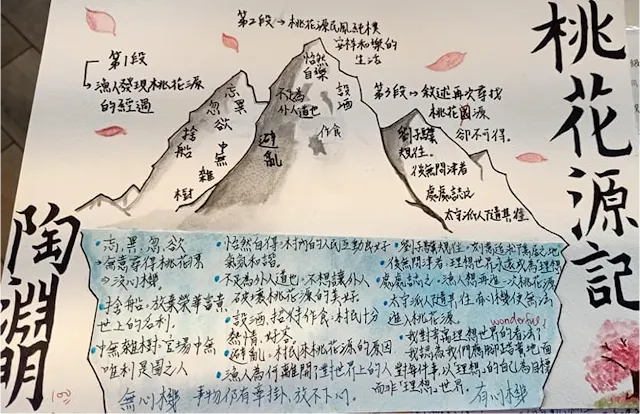 桃花源記
陶淵明
第1段
漁人發現桃花源
的經過
第2段→桃花源民風純樸
安祥和樂的
生活
第3段→敘述再次尋找
桃花園源
卻不可得。
忘異
忽欲
捨船
中無
雜樹
怡然
自樂
不足為
外人道也
設酒
作食
避亂
劉子驥
規往。
後無問津者
處處誌之
太守派人隨其往
忘、異、忽、欲
無意尋得桃花源
⇒沒心機
捨船,放棄榮華富貴
世上的名利。
中無雜樹:官場中無
唯利是圖之人
怡然自得:村內的人民互動良好
氣氛和諧。
不足為外人道也,不想讓外人
破壞桃花源的美好
設酒、捨雞作食:村民十分
熱情、好客
避亂:村民來桃花源的原因
漁人為何離開?對世界上的人
事物仍有牽掛,放不下心。
劉子驥規往。
後無問津者:理想世界永遠成為理想
處處誌之,漁人想再進一次桃花源
太守派人隨其往,有心機便無法
進入桃花源。
wonderful!
我對有關理想世界的看法?
無心機
有心機
100